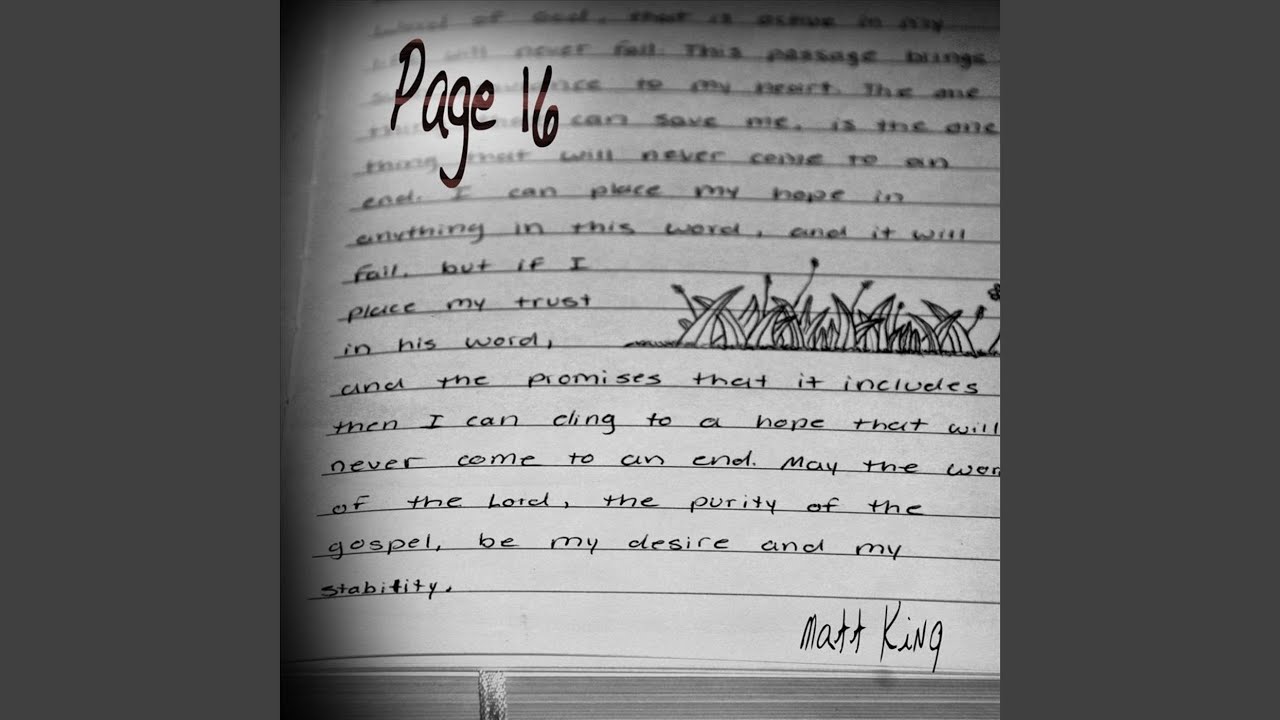 word of God, that is active in my
will never fail. This passage brings
Page 16
to my heart. The one
can save me, is the one
thing that will never come to an
end. I can place my hope in
anything in this word, and it will
fail, but if I
place my trust
in his word,
and the promises that it includes
then I can cling to a hope that will
never come to an end. May the wor
of the Lord, the purity of the
gospel, be my desire and my
stability.
Matt King